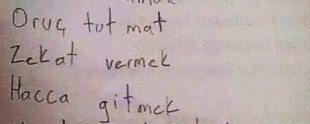 Oruç tutmat
Zekat vermek
Hacca gitmek